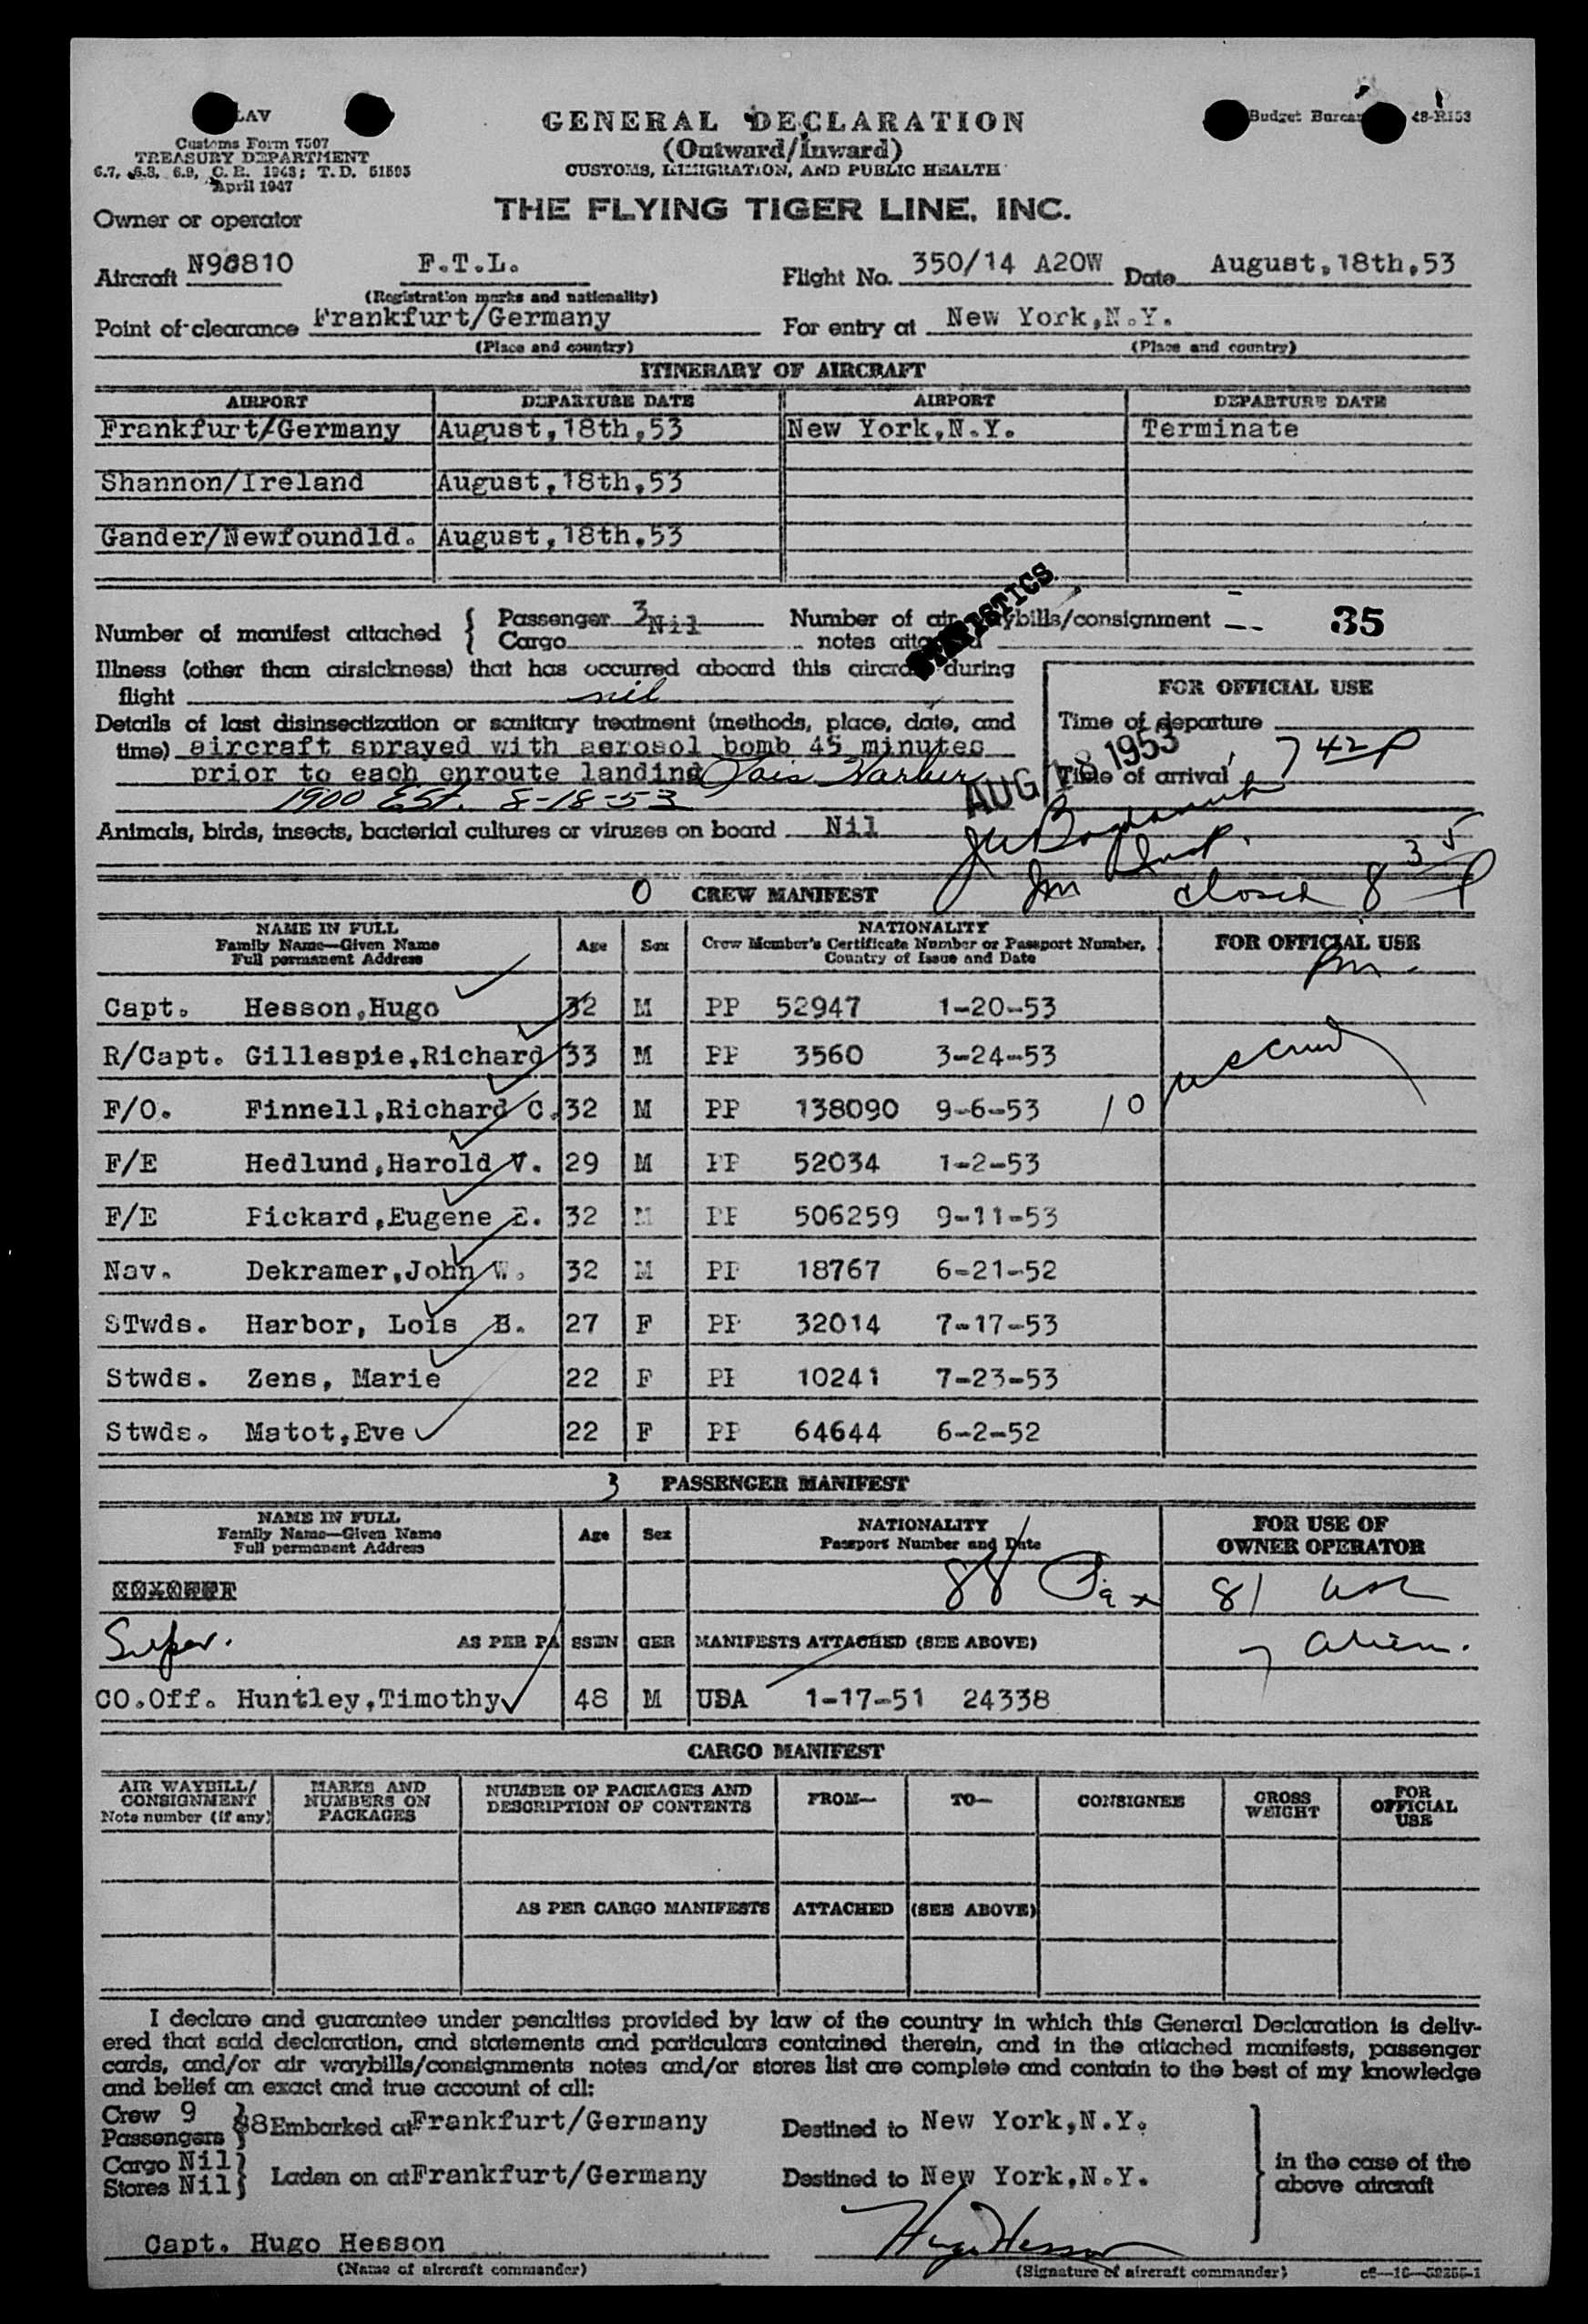 LAV
Customs Form 7507
TREASURY DEPARTMENT
6.7, 6.8, 6.9, C. R. 1943; T. D. 51593
April 1947
Budget Bureau 48-R153
GENERAL DECLARATION
(Outward/Inward)
CUSTOMS, IMMIGRATION, AND PUBLIC HEALTH
Owner or operator THE FLYING TIGER LINE, INC.
Aircraft N96810 F.T.L. Flight No. 350/14 A20W Date August,18th,53
(Registration marks and nationality)
Point of clearance Frankfurt/Germany For entry at New York,N.Y.
(Place and country) (Place and country)
ITINERARY OF AIRCRAFT
AIRPORT DEPARTURE DATE AIRPORT DEPARTURE DATE
Frankfurt/Germany August,18th,53 New York,N.Y. Terminate
Shannon/Ireland August,18th,53
Gander/Newfoundld. August,18th,53
STATISTICS
Number of manifest attached { Passenger 3 Nil Number of air waybills/consignment -- 35
Cargo notes attached
Illness (other than airsickness) that has occurred aboard this aircraft during
flight nil
FOR OFFICIAL USE
Details of last disinsectization or sanitary treatment (methods, place, date, and
Time of departure
time) aircraft sprayed with aerosol bomb 45 minutes
AUG 18 1953
Time of arrival 742P
prior to each enroute landing Lois Harbor
1900 Est. 8-18-53
Animals, birds, insects, bacterial cultures or viruses on board Nil
Insp.
closed 8 35 P
0 CREW MANIFEST
NAME IN FULL
Family Name—Given Name
Full permanent Address
Age Sex
NATIONALITY
Crew Member's Certificate Number or Passport Number,
Country of Issue and Date
FOR OFFICIAL USE
Capt. Hesson,Hugo 32 M PP 52947 1-20-53
R/Capt. Gillespie,Richard 33 M PP 3560 3-24-53
F/O. Finnell,Richard C. 32 M PP 138090 9-6-53 10
F/E Hedlund,Harold V. 29 M PP 52034 1-2-53
F/E Pickard,Eugene E. 32 M PP 506259 9-11-53
Nav. Dekramer,John W. 32 M PP 18767 6-21-52
STwds. Harbor, Lois B. 27 F PP 32014 7-17-53
Stwds. Zens, Marie 22 F PP 10241 7-23-53
Stwds. Matot,Eve 22 F PP 64644 6-2-52
3 PASSENGER MANIFEST
NAME IN FULL
Family Name—Given Name
Full permanent Address
Age Sex
NATIONALITY
Passport Number and Date
FOR USE OF
OWNER OPERATOR
88 Pax 81 usc
Super. AS PER PASSENGER MANIFESTS ATTACHED (SEE ABOVE) 7 alien.
CO.Off. Huntley,Timothy 48 M USA 1-17-51 24338
CARGO MANIFEST
AIR WAYBILL/
CONSIGNMENT
Note number (if any)
MARKS AND
NUMBERS ON
PACKAGES
NUMBER OF PACKAGES AND
DESCRIPTION OF CONTENTS
FROM— TO— CONSIGNEE
GROSS
WEIGHT
FOR
OFFICIAL
USE
AS PER CARGO MANIFESTS ATTACHED (SEE ABOVE)
I declare and guarantee under penalties provided by law of the country in which this General Declaration is deliv-
ered that said declaration, and statements and particulars contained therein, and in the attached manifests, passenger
cards, and/or air waybills/consignments notes and/or stores list are complete and contain to the best of my knowledge
and belief an exact and true account of all:
Crew 9
Passengers } 88 Embarked at Frankfurt/Germany Destined to New York,N.Y.
Cargo Nil
Stores Nil } Laden on at Frankfurt/Germany Destined to New York,N.Y.
} in the case of the
above aircraft
Capt. Hugo Hesson Hugo Hesson
(Name of aircraft commander) (Signature of aircraft commander)